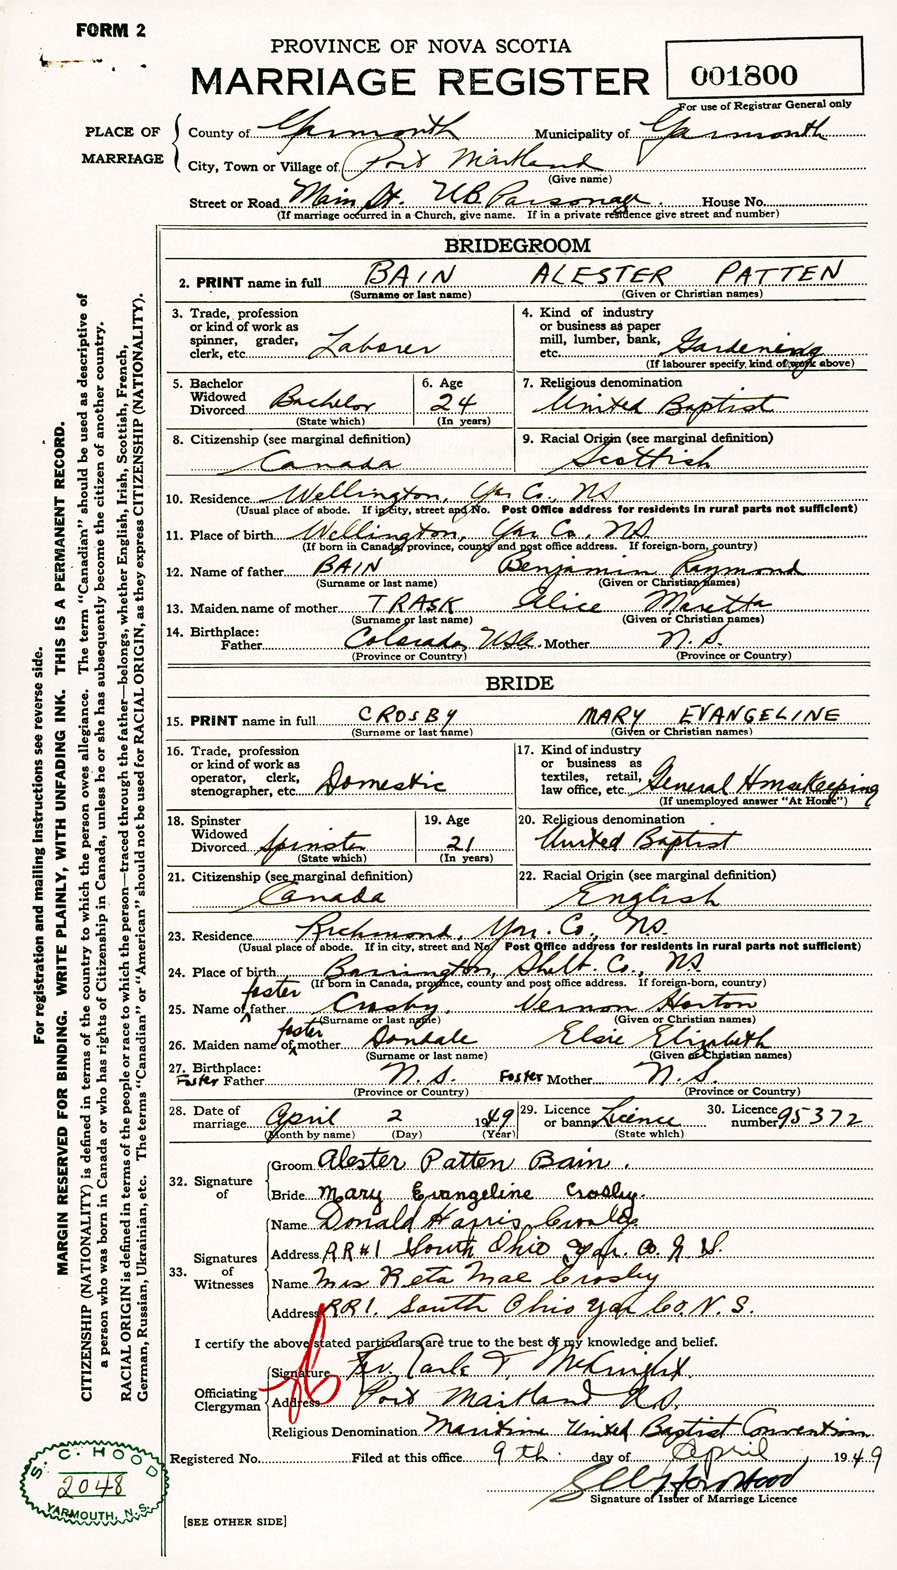 FORM 2
PROVINCE OF NOVA SCOTIA
MARRIAGE REGISTER
001800
For use of Registrar General only
PLACE OF MARRIAGE
County of Yarmouth Municipality of Yarmouth
City, Town or Village of Port Maitland
(Give name)
Street or Road Main St. U.B. Parsonage. House No.
(If marriage occurred in a Church, give name. If in a private residence give street and number)
BRIDEGROOM
2. PRINT name in full BAIN ALESTER PATTEN
(Surname or last name) (Given or Christian names)
3. Trade, profession or kind of work as spinner, grader, clerk, etc. Laborer
4. Kind of industry or business as paper mill, lumber, bank, etc. Gardening
(If labourer specify, kind of work above)
5. Bachelor Widowed Divorced Bachelor
(State which)
6. Age 24
(In years)
7. Religious denomination
United Baptist
8. Citizenship (see marginal definition)
Canada
9. Racial Origin (see marginal definition)
Scottish
10. Residence Wellington, Yar Co., NS
(Usual place of abode. If in city, street and No. Post Office address for residents in rural parts not sufficient)
11. Place of birth Wellington, Yar Co. NS
(If born in Canada, province, county and post office address. If foreign-born, country)
12. Name of father BAIN Benjamin Raymond
(Surname or last name) (Given or Christian names)
13. Maiden name of mother TRASK Alice Maretta
(Surname or last name) (Given or Christian names)
14. Birthplace:
Father Colorado, USA. Mother N.S.
(Province or Country) (Province or Country)
BRIDE
15. PRINT name in full CROSBY MARY EVANGELINE
(Surname or last name) (Given or Christian names)
16. Trade, profession or kind of work as operator, clerk, stenographer, etc. Domestic
17. Kind of industry or business as textiles, retail, law office, etc. General Housekeeping
(If unemployed answer "At Home")
18. Spinster Widowed Divorced Spinster
(State which)
19. Age 21
(In years)
20. Religious denomination
United Baptist
21. Citizenship (see marginal definition)
Canada
22. Racial Origin (see marginal definition)
English
23. Residence Richmond, Yar. Co., NS.
(Usual place of abode. If in city, street and No. Post Office address for residents in rural parts not sufficient)
24. Place of birth Barrington, Shelb. Co., NS
(If born in Canada, province, county and post office address. If foreign-born, country)
25. Name of foster father Crosby, Vernon Horton
(Surname or last name) (Given or Christian names)
26. Maiden name of foster mother Elsie Elizabeth
(Surname or last name) (Given or Christian names)
27. Birthplace:
Foster Father N.S. Foster Mother N.S.
(Province or Country) (Province or Country)
28. Date of marriage April 2 1949
(Month by name) (Day) (Year)
29. Licence or banns Licence
(State which)
30. Licence number 95372
32. Signature of
Groom Alester Patten Bain.
Bride Mary Evangeline Crosby.
33. Signatures of Witnesses
Name Donald Harris Crosby
Address RR#1 South Ohio Yar. Co. N.S.
Name Mrs Reta Mae Crosby
Address RR1. South Ohio Yar Co. N.S.
I certify the above stated particulars are true to the best of my knowledge and belief.
Officiating Clergyman
Signature Rev. Earle T. McKnight.
Address Port Maitland N.S.
Religious Denomination Maritime United Baptist Convention
Registered No. Filed at this office 9th day of April, 1949
Hood
Signature of Issuer of Marriage Licence
[SEE OTHER SIDE]
S. C. HOOD
2048
YARMOUTH, N.S.
For registration and mailing instructions see reverse side.
MARGIN RESERVED FOR BINDING. WRITE PLAINLY, WITH UNFADING INK. THIS IS A PERMANENT RECORD.
CITIZENSHIP (NATIONALITY) is defined in terms of the country to which the person owes allegiance. The term "Canadian" should be used as descriptive of
a person who was born in Canada or who has rights of Citizenship in Canada, unless he or she has subsequently become the citizen of another country.
RACIAL ORIGIN is defined in terms of the people or race to which the person—traced through the father—belongs, whether English, Irish, Scottish, French,
German, Russian, Ukrainian, etc. The terms "Canadian" or "American" should not be used for RACIAL ORIGIN, as they express CITIZENSHIP (NATIONALITY).